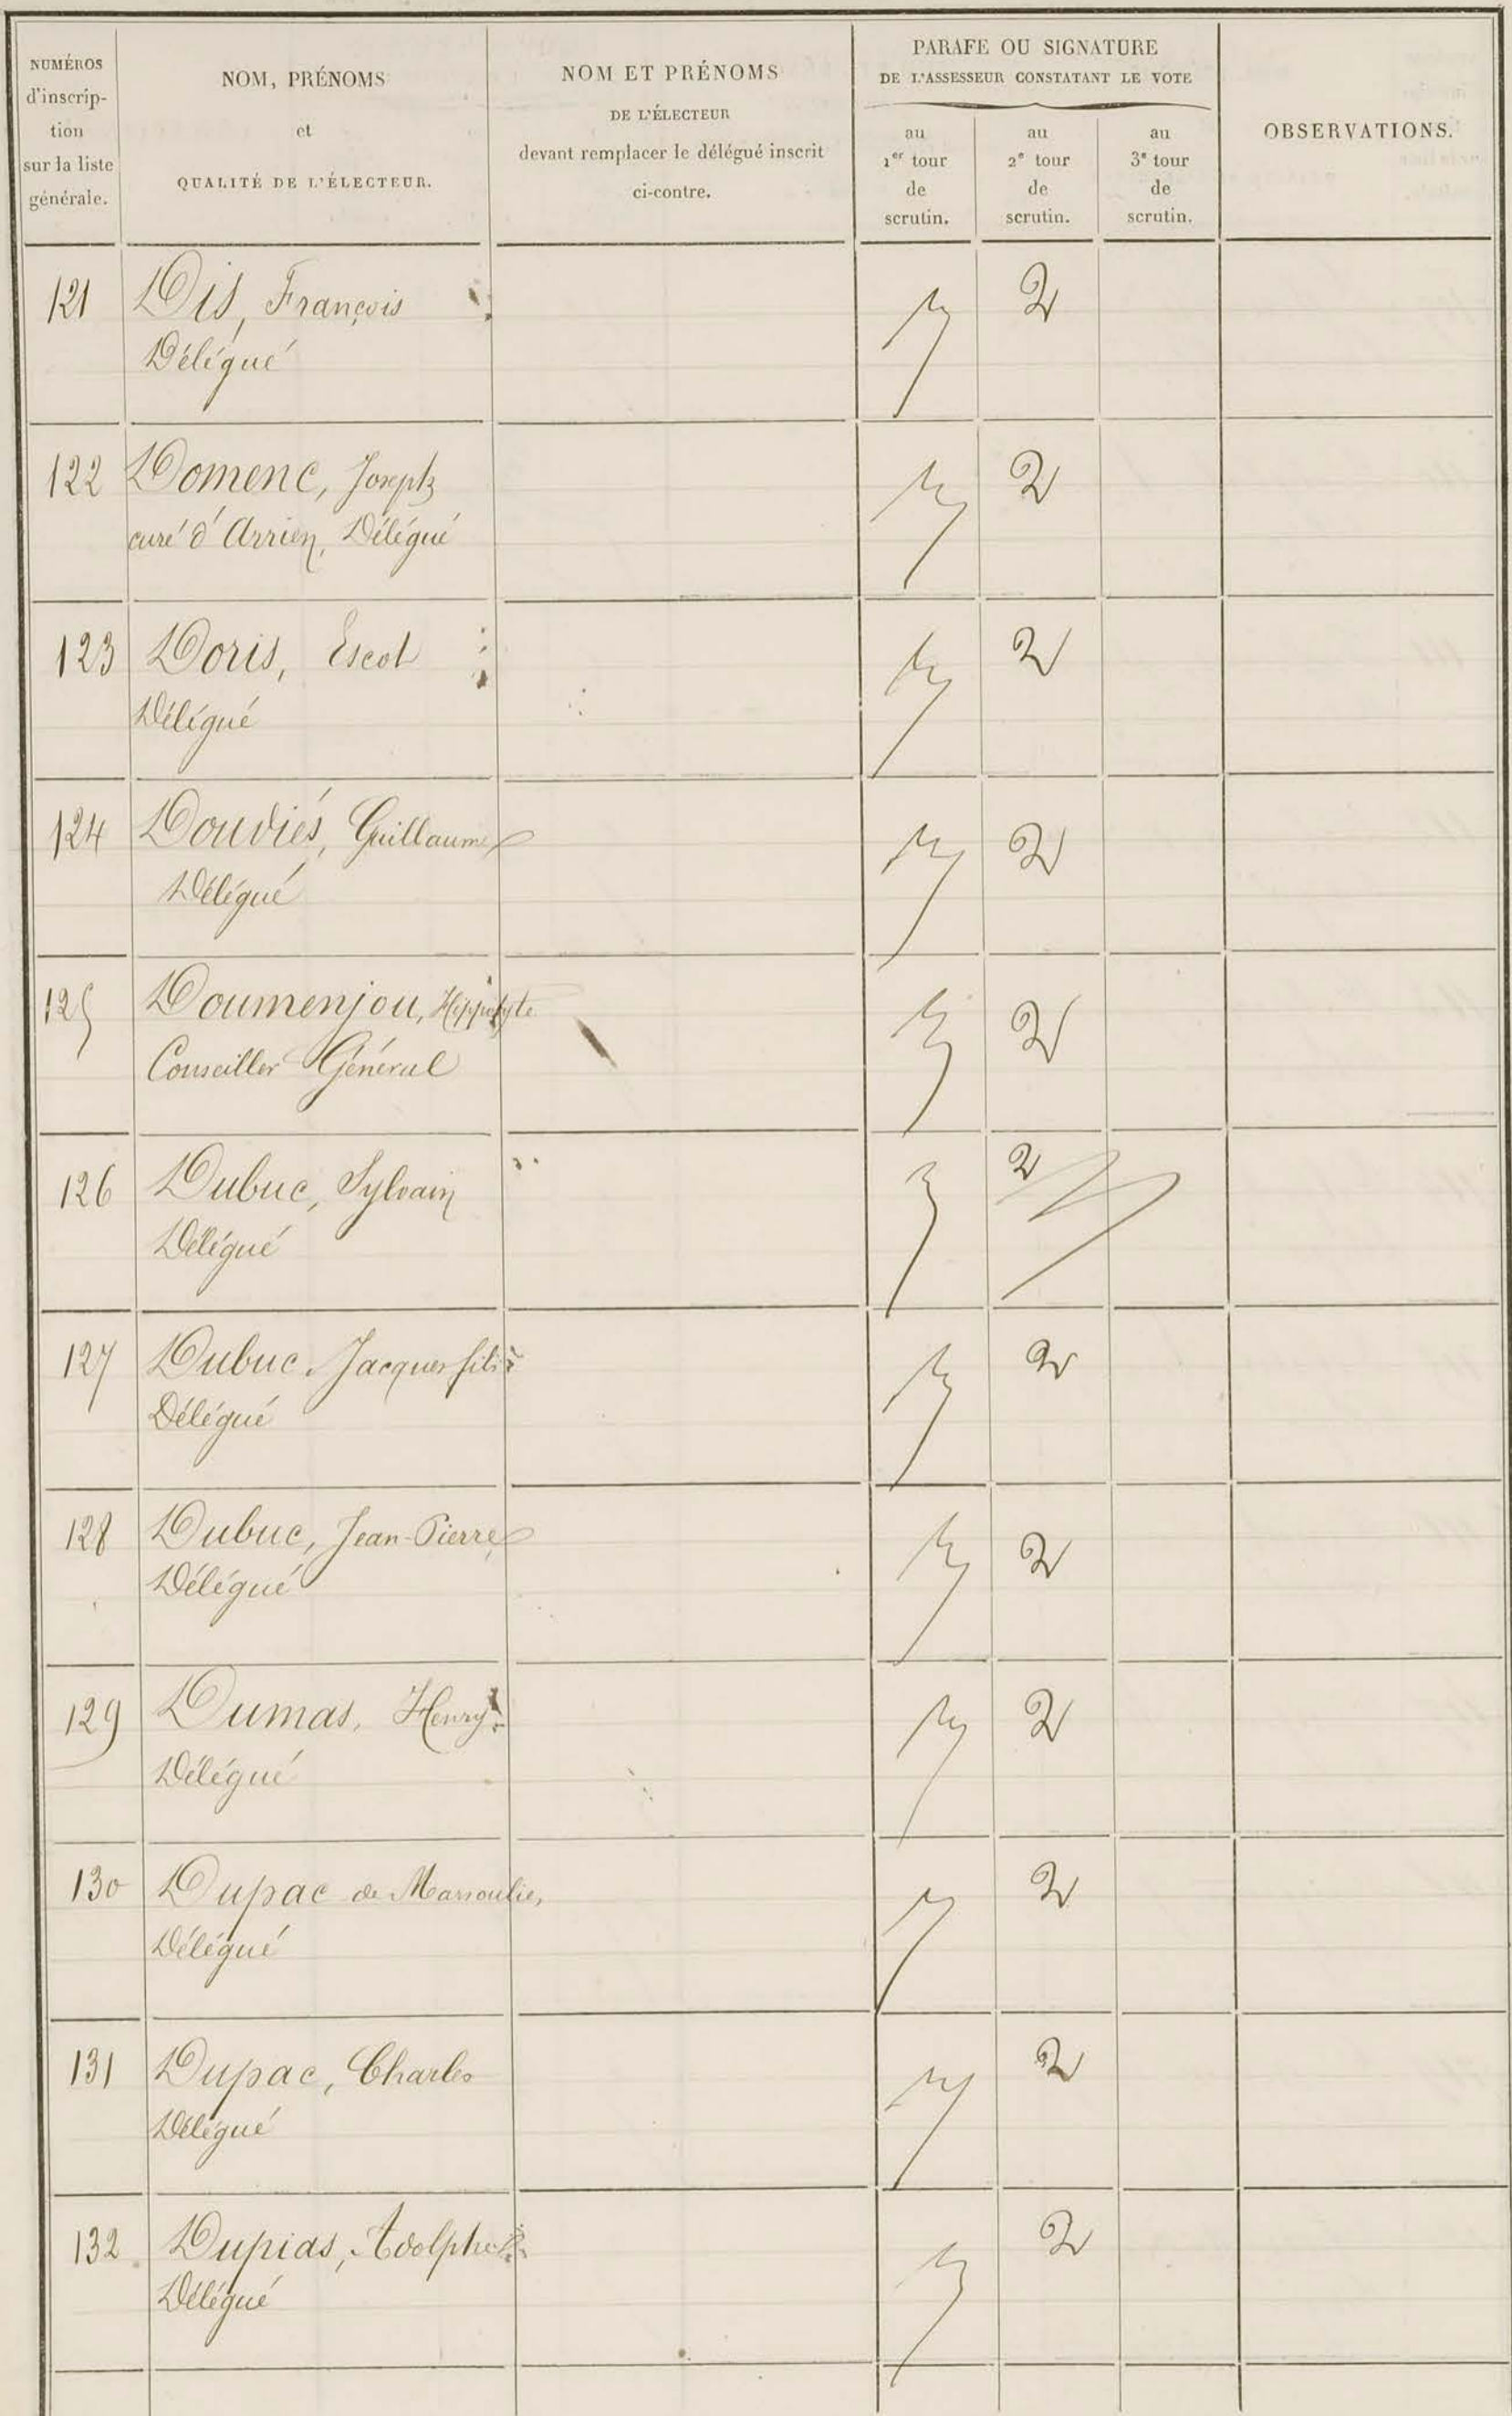 NUMÉROS
d'inscrip-
tion
sur la liste
générale.
NOM, PRÉNOMS
et
QUALITÉ DE L'ÉLECTEUR.
NOM ET PRÉNOMS
DE L'ÉLECTEUR
devant remplacer le délégué inscrit
ci-contre.
PARAFE OU SIGNATURE
DE L'ASSESSEUR CONSTATANT LE VOTE
au
1er tour
de
scrutin.
au
2e tour
de
scrutin.
au
3e tour
de
scrutin.
OBSERVATIONS.
121 Dis, François 2
Délégué
122 Domenc, Joseph 2
curé d'Arrien, Délégué
123 Doris, Escot 2
Délégué
124 Douviés, Guillaume 2
Délégué
125 Doumenjou, Hippolyte 2
Conseiller Général
126 Dubuc, Sylvain 2
Délégué
127 Dubuc, Jacques fils 2
Délégué
128 Dubuc, Jean-Pierre 2
Délégué
129 Dumas, Henry 2
Délégué
130 Dupac de 2
Délégué
131 Dupac, Charles 2
Délégué
132 Dupias, Adolphe 2
Délégué